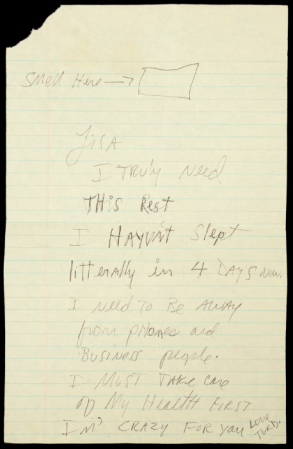 Smell Here →
Lisa
I Truly Need
THis Rest
I HAVen't Slept
litterally in 4 DAYS now.
I need To Be AWAY
from phones and
Business people.
I Must Take care
of My Health First
I'm CRAZY FoR you
Love
TURD.